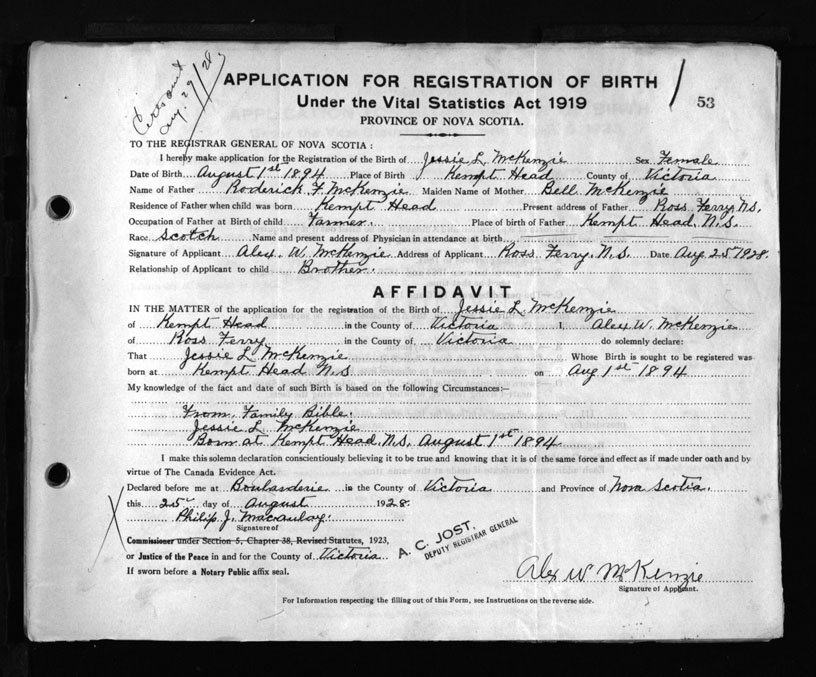 Cert sent
Aug. 29/28
APPLICATION FOR REGISTRATION OF BIRTH
53
Under the Vital Statistics Act 1919
PROVINCE OF NOVA SCOTIA.
TO THE REGISTRAR GENERAL OF NOVA SCOTIA:
I hereby make application for the Registration of the Birth of Jessie L McKenzie Sex Female
Date of Birth August 1st 1894 Place of Birth Kempt Head County of Victoria
Name of Father Roderick F McKenzie Maiden Name of Mother Bell McKenzie
Residence of Father when child was born Kempt Head Present address of Father Ross Ferry N.S.
Occupation of Father at Birth of child Farmer. Place of birth of Father Kempt Head N.S.
Race Scotch Name and present address of Physician in attendance at birth
Signature of Applicant Alex. W. McKenzie Address of Applicant Ross Ferry, N.S. Date Aug 25 1928.
Relationship of Applicant to child Brother.
AFFIDAVIT
IN THE MATTER of the application for the registration of the Birth of Jessie L McKenzie
of Kempt Head in the County of Victoria I, Alex W. McKenzie
of Ross Ferry in the County of Victoria do solemnly declare:
That Jessie L McKenzie Whose Birth is sought to be registered was
born at Kempt Head N.S on Aug 1st 1894
My knowledge of the fact and date of such Birth is based on the following Circumstances:—
From Family Bible.
Jessie L McKenzie
Born at Kempt Head N.S, August 1st 1894
I make this solemn declaration conscientiously believing it to be true and knowing that it is of the same force and effect as if made under oath and by
virtue of The Canada Evidence Act.
Declared before me at Boularderie in the County of Victoria and Province of Nova Scotia.
this 25 day of August 1928.
Philip J. Macaulay.
Signature of
Commissioner under Section 5, Chapter 38, Revised Statutes, 1923,
or Justice of the Peace in and for the County of Victoria
If sworn before a Notary Public affix seal.
A. C. JOST,
DEPUTY REGISTRAR GENERAL
Alex W McKenzie
Signature of Applicant.
For Information respecting the filling out of this Form, see Instructions on the reverse side.